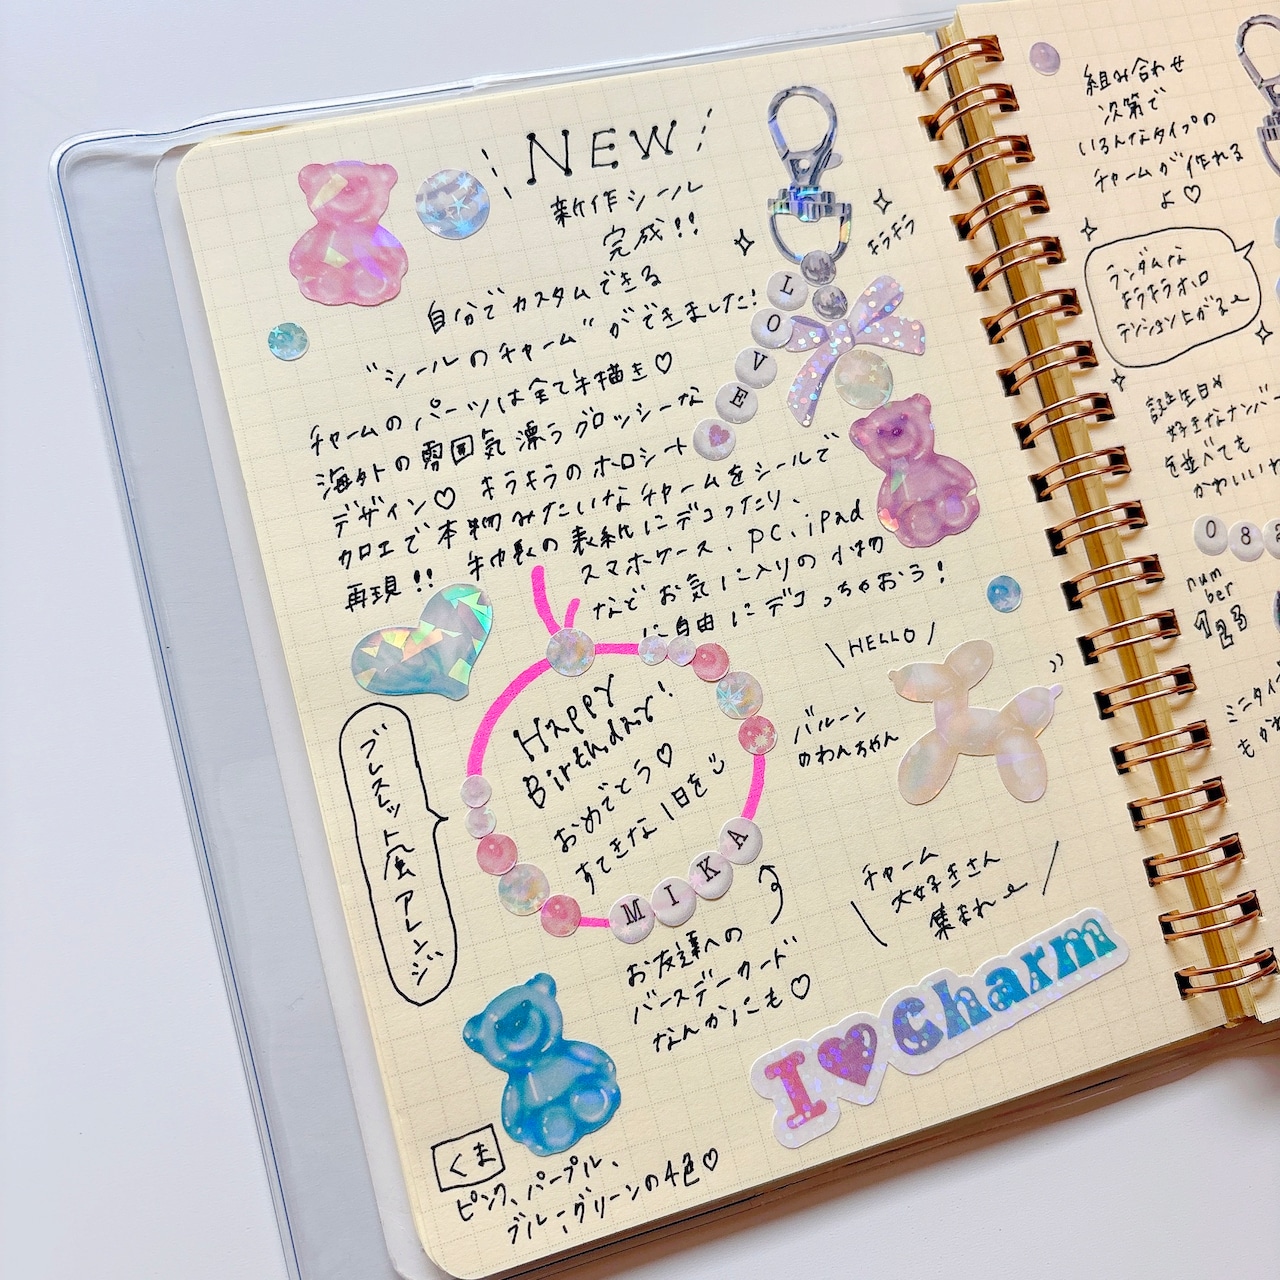 NEW
新作シール
完成!!
自分でカスタムできる
"シールのチャーム"ができました!
チャームのパーツは全て手描き♡
海外の雰囲気漂うグロッシーな
デザイン♡ キラキラのホロシート
加工で本物みたいなチャームをシールで
再現!! 手帳の表紙にデコったり、
スマホケース、PC、iPad
などお気に入りの小物
に自由にデコっちゃおう!
キラキラ
L
O
V
E
HELLO
バルーン
のわんちゃん
Happy
Birthday!
おめでとう♡
すてきな1日を
MIKA
ブレスレット風アレンジ
お友達への
バースデーカード
なんかにも♡
チャーム
大好きさん
集まれ
I ♥ Charm
くま
ピンク、パープル、
ブルー、グリーンの4色♡
組み合わせ
次第で
いろんなタイプの
チャームが作れる
よ♡
ランダムな
キラキラホロ
テンション上がる
誕生日や
好きなナンバー
を並べても
かわいい
0 8
num
ber
123
ミニタイ
もか